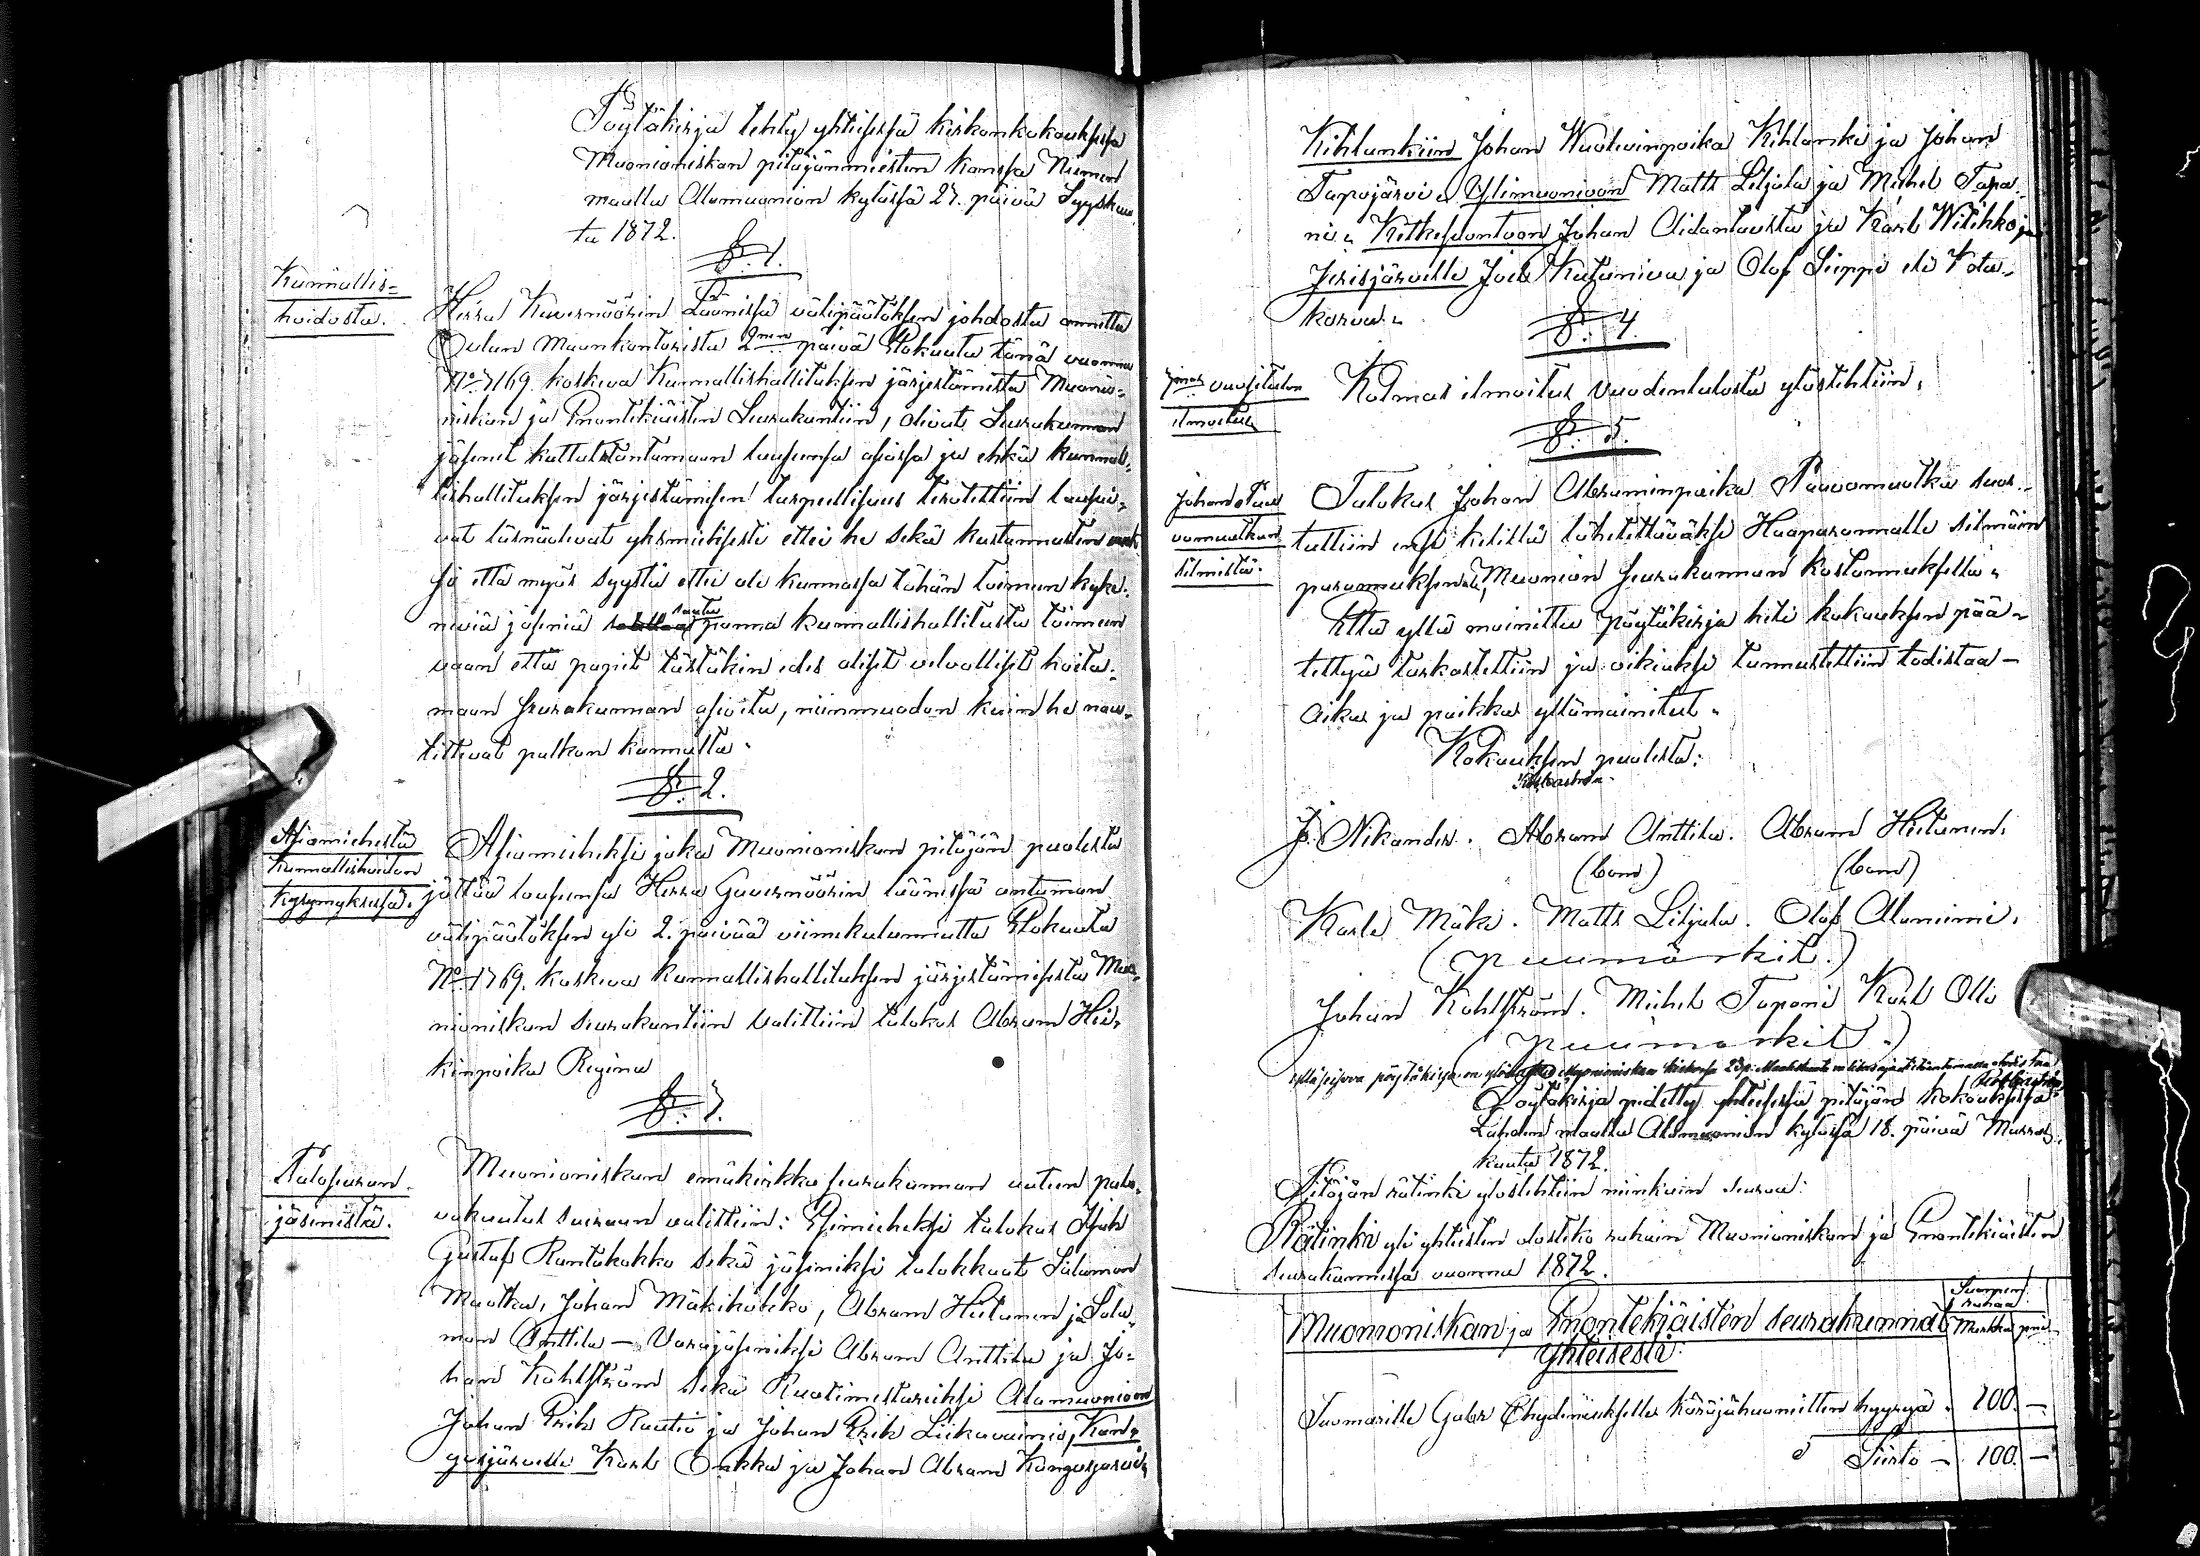 Pöytäkirja tehty yhteisessä kirkonkokouksessa
Muonioniskan pitäjänmiesten kanssa Niemen
maalla Alamuonion kylässä 27. päivä Syyskuu
ta 1872.
§. 1.
Kunnallis-
hoidosta.
Herra Kuvernöörin Läänissä välipäätöksen johdosta annettu
Oulun Maankontorista 2nen päivä Elokuuta tänä vuonna
No 1769. koskeva Kunnallishallituksen järjestämistä Muonio-
niskan ja Enontekiäisten Seurakuntiin, olivat Seurakunnan
jäsenet kutsutut antamaan lausunsa asiassa ja ehkä kunnal-
lishallituksen järjestämisen tarpeellisuus teroitettiin lausui-
vat läsnäolevat yksmielisesti ettei he sekä kustannusten
sä että myös syystä ettei ole kunnassa tähän toimeen kyke-
neviä jäseniä saata panna kunnallishallitusta toimeen
vaan että papit tästäkin edes olisit velvolliset hoita-
maan seurakunnan asioita, niinmuodon kuin he nau-
tittevat palkan kunnalta.
§. 2.
Asiamiehestä
Kunnallishoidon
Kysymyksessä.
Asiamieheksi joka Muonioniskan pitäjän puolesta
jättää lausunsa Herra Guvernöörin läänissä antaman
välipäätöksen yli 2. päivää viimekulunutta Elokuuta
No 1769. koskeva kunnallishallituksen järjestämisestä Muo-
nioniskan seurakuntiin valittiin talokas Abram Hei-
kinpoika Regina
§. 3.
Paloseuran
jäsenistä.
Muonioniskan emäkirkko seurakunnan uuteen palo-
vakuutus seuraan valittiin: Esimieheksi talokas Isak
Gustaf Rantakokko sekä jäseniksi talokkaat Salamon
Muotka, Johan Mäkikokko, Abram Hietanen ja Salo-
mon Anttila – Varajäseniksi Abram Anttila ja Jo-
han Kohlström sekä Ruotimestareiksi Alamuonioon
Johan Erik Rautio ja Johan Erik Liikavainio, Kan-
gosjärvelle Karl Onkka ja Johan Abram Kangosjärvi,
Kihlankiin Johan Wuolevinpoika Kihlanki ja Johan
Tapojärvi, Ylimuonioon Matts Liljala ja Michel Tapa-
ni, Kätkesuantoon Johan Aidantausta ja Karl Wilihko ja
Jerisjärvelle Joel Kutuniva ja Olof Seppä eli Kota-
korva.
§. 4.
3mas vuositulon
ilmoitus
Kolmas ilmoitus vuodentulosta ylöstehtiin,
§. 5.
Johan Paa
vomuotkan
silmistä.
Talokas Johan Abraminpoika Paavomuotka suos-
tuttiin ensi kelillä lähetettäväksi Haaparannalle silmäin
parannukseen, Muonion seurakunnan kostannuksella.
Että yllä mainittu pöytäkirja heti kokouksen pää-
tettyä tarkastettiin ja oikiaksi tunnustettiin todistaa –
Aika ja paikka yllämainitut.
Kokouksen puolesta:
J. Nikander. Abram Anttila. Abram Hietanen.
(bom) (bom)
Karl Mäki. Matts Liljala. Olof Alaniemi.
(puumärkit.)
Johan Kohlström. Michel Tapani Karl Olli
(puumärkit.)
Pöytäkirja pidetty yhteisessä pitäjän kokouksessa
Lahden maalla Alamuonion kylässä 18. päivä Marras-
kuuta 1872.
Pitäjän rätinki ylöstehtiin niinkuin seuraa:
Rätinki yli yhteisten olosteko rahain Muonioniskan ja Enontekiäisten
Seurakunnissa vuonna 1872.
Suomen
rahaa
Muonioniskan ja Enontekiäisten seurakunnat
Markka pen
Yhteisesti
Tuomarille Gabr Ehydeniukselle käräjähuonitten hyyryä. 100. –
Siirto – 100. –